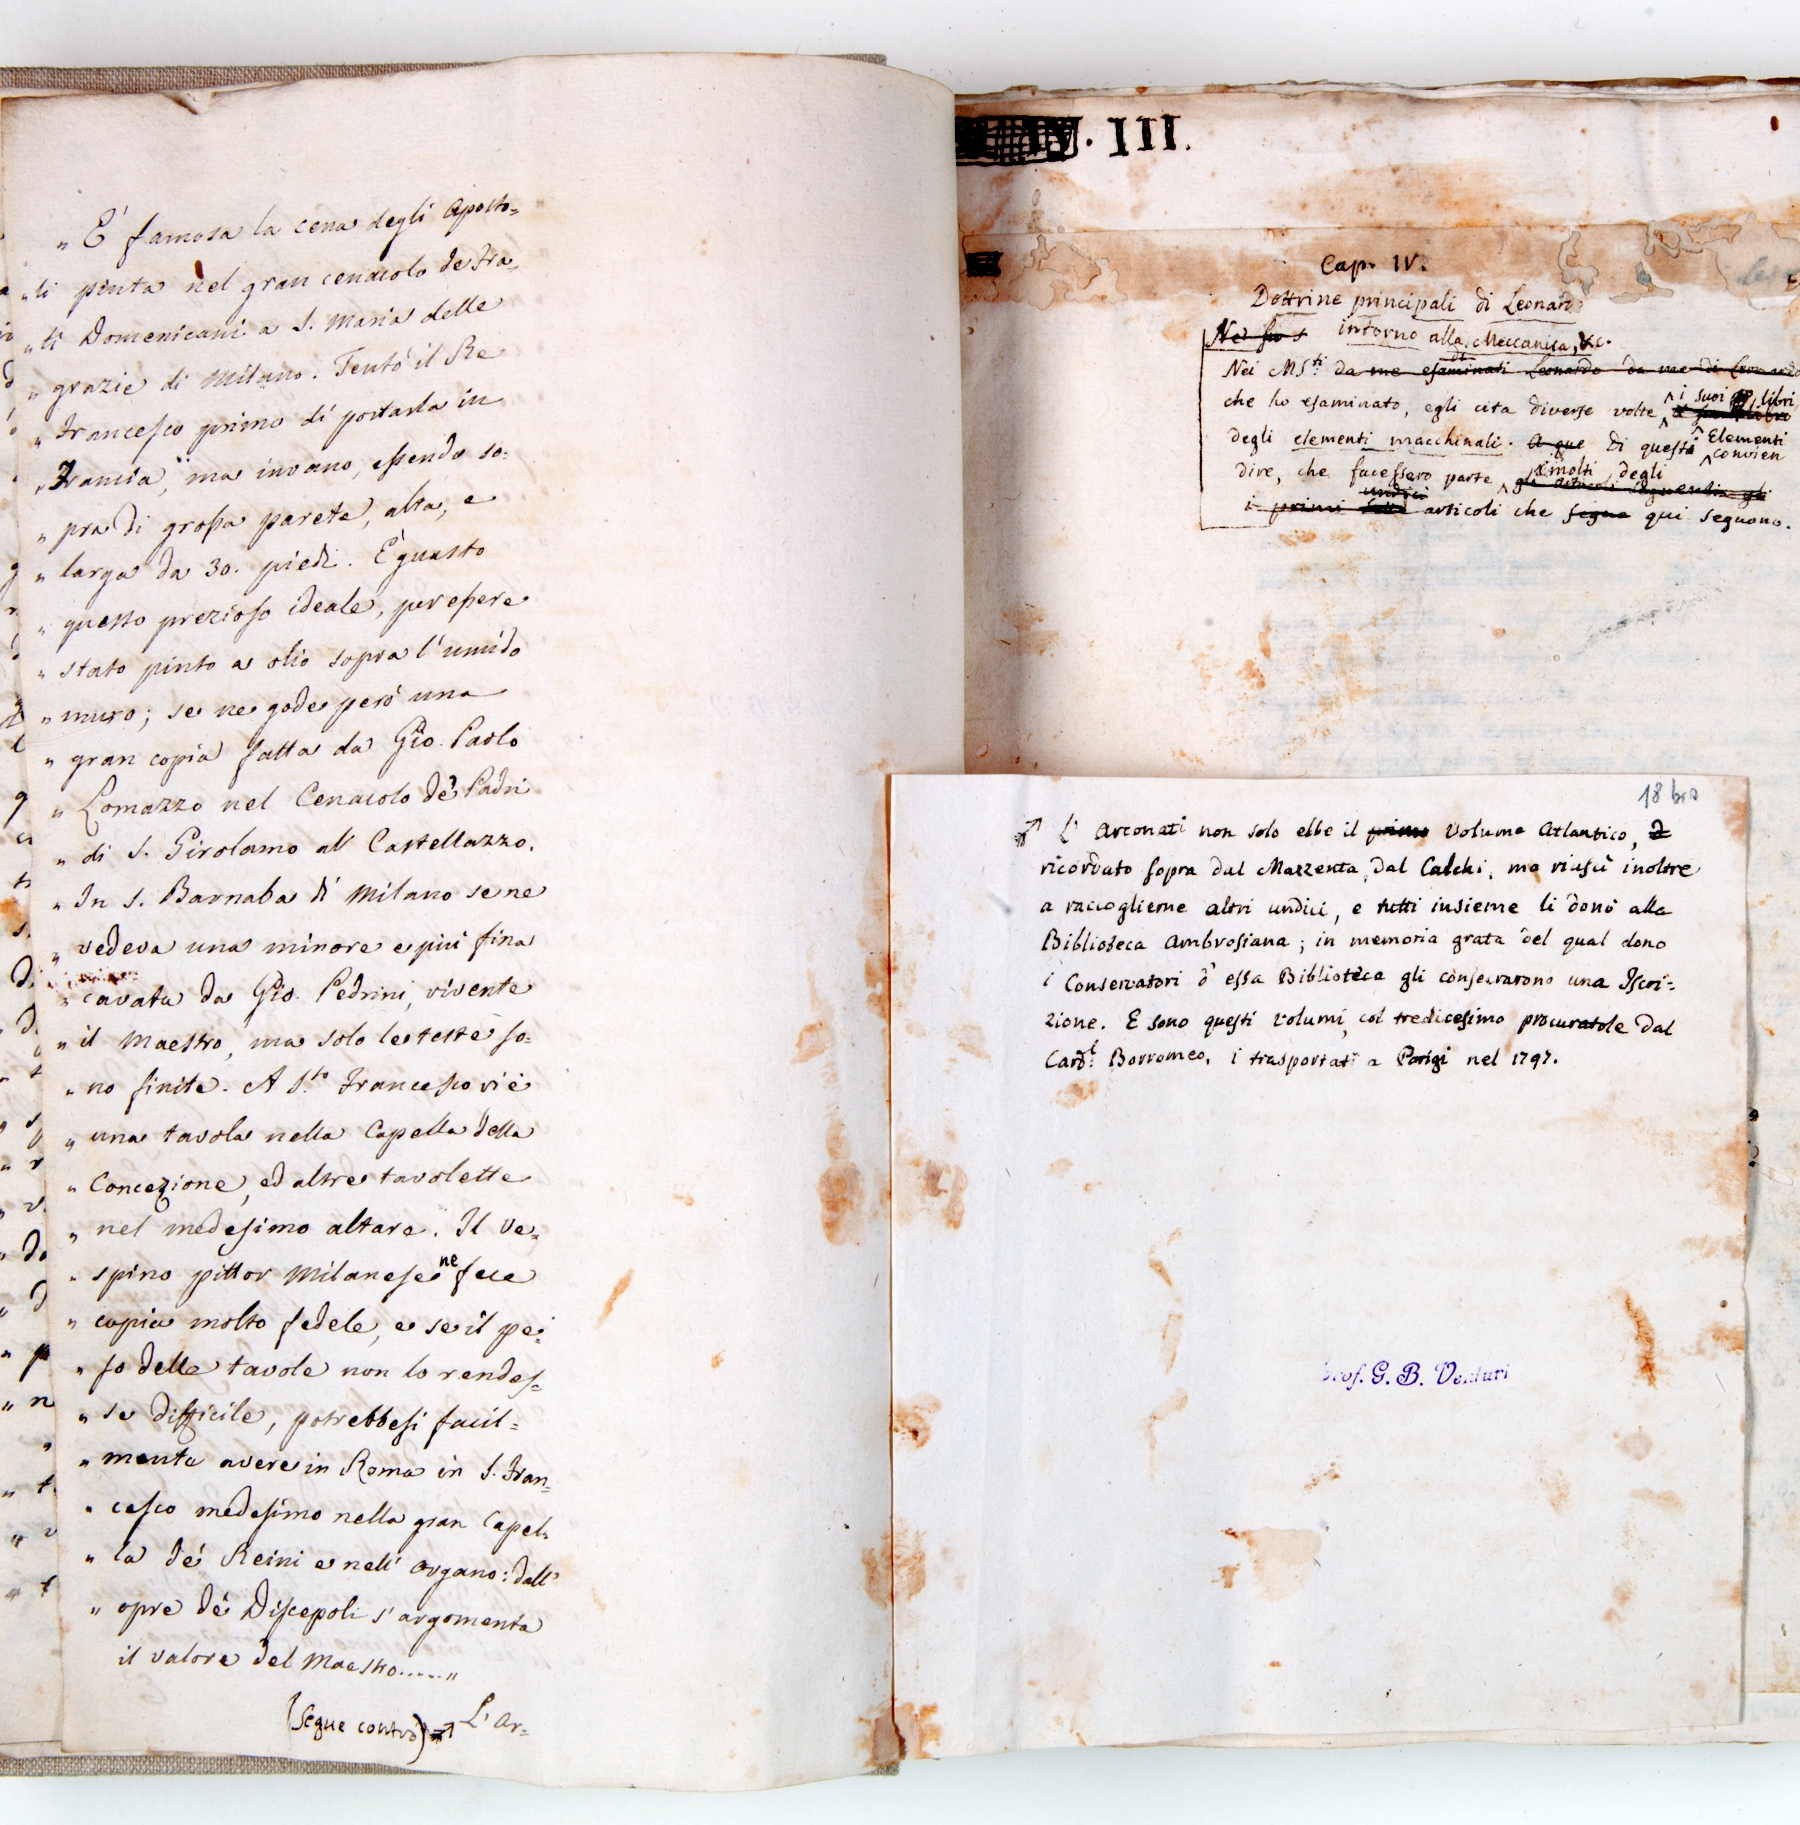 „ E' famosa la cena degli Aposto=
„ li pinta nel gran cenacolo de Fra=
„ ti Domenicani a S. Maria delle
„ grazie di Milano. Tentò il Re
„ Francesco primo di portarla in
„ Francia, ma invano, essendo so=
„ pra di grossa parete, alta, e
„ larga da 30. piedi. E' guasto
„ questo prezioso ideale, per essere
„ stato pinto a olio sopra l'umido
„ muro; se ne gode però una
„ gran copia fatta da Gio. Paolo
„ Lomazzo nel Cenacolo de' Padri
„ di S. Girolamo al Castellazzo.
„ In S. Barnaba di Milano se ne
„ vedeva una minore e più fina
„ cavata da Gio. Pedrini, vivente
„ il Maestro, ma solo le teste so=
„ no finite. A S.to Francesco vi è
„ una tavola nella Capella della
„ Concezione, ed altre tavolette
„ nel medesimo altare. Il Ve=
„ spino pittor Milanese ne fece
„ copia molto fedele, e se il pe=
„ so delle tavole non lo rendes=
„ se difficile, potrebbesi facil=
„ mente avere in Roma in S. Fran=
„ cesco medesimo nella gran Capel=
„ la de' Reini e nell' organo: dall'
„ opre de' Discepoli s'argomenta
il valore del Maestro...... „
(Segue contro) L' Ar=
IV. III.
Cap. IV.
Dottrine principali di Leonardo
intorno alla Meccanica, &c.
Nei MS.ti da me esaminati Leonardo da me di Leonardo
che ho esaminato, egli cita diverse volte i suoi libri
degli elementi macchinali. A que di questi Elementi convien
dire, che facessero parte molti degli
gli articoli seguenti gli
undici
i primi articoli che segue qui seguono.
18 bis
L' Arconati non solo ebbe il primo Volume Atlantico,
ricordato sopra dal Mazzenta, dal Calchi, ma riuscì inoltre
a raccoglierne altri undici, e tutti insieme li donò alla
Biblioteca Ambrosiana; in memoria grata del qual dono
i Conservatori d' essa Biblioteca gli consecrarono una Iscri=
zione. E sono questi volumi, col tredicesimo procuratole dal
Card.l Borromeo, i trasportati a Parigi nel 1797.
prof. G. B. Venturi